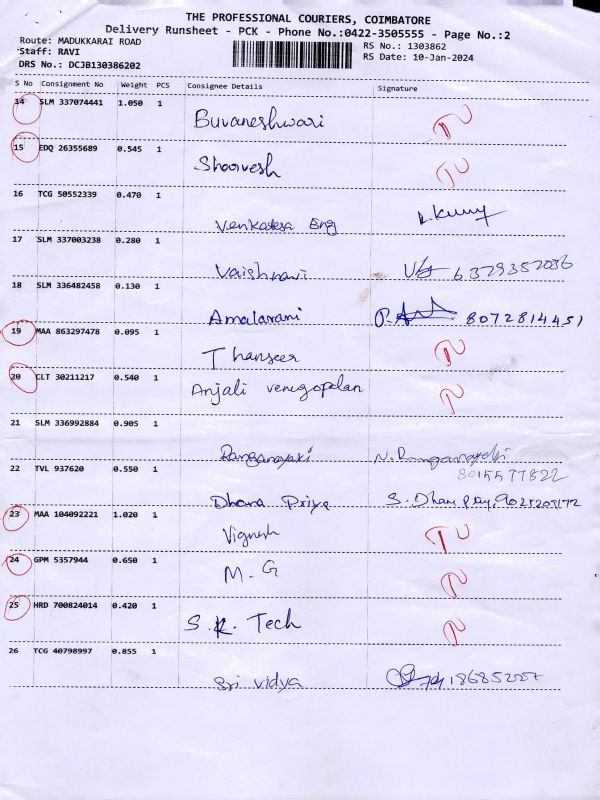 THE PROFESSIONAL COURIERS, COIMBATORE
Delivery Runsheet - PCK - Phone No.:0422-3505555 - Page No.:2
Route: MADUKKARAI ROAD
Staff: RAVI
DRS No.: DCJB130386202
RS No.: 1303862
RS Date: 10-Jan-2024
S No Consignment No Weight PCS Consignee Details Signature
14 SLM 337074441 1.050 1
Buvaneshwari
15 EDQ 26355689 0.545 1
Sharvesh
16 TCG 50552339 0.470 1
Venkatesa Eng
17 SLM 337003238 0.280 1
Vaishnavi 6379357036
18 SLM 336482458 0.130 1
Amalarani 8072814451
19 MAA 863297478 0.095 1
Thanseer
20 CLT 30211217 0.540 1
Anjali venugopalan
21 SLM 336992884 0.905 1
Ranganayaki N. Ranganayaki
8015577822
22 TVL 937620 0.550 1
Dhana Priya
23 MAA 104092221 1.020 1
Vignesh
24 GPM 5357944 0.650 1
M.G
25 HRD 700824014 0.420 1
S.K. Tech
26 TCG 40798997 0.855 1
Sri vidya